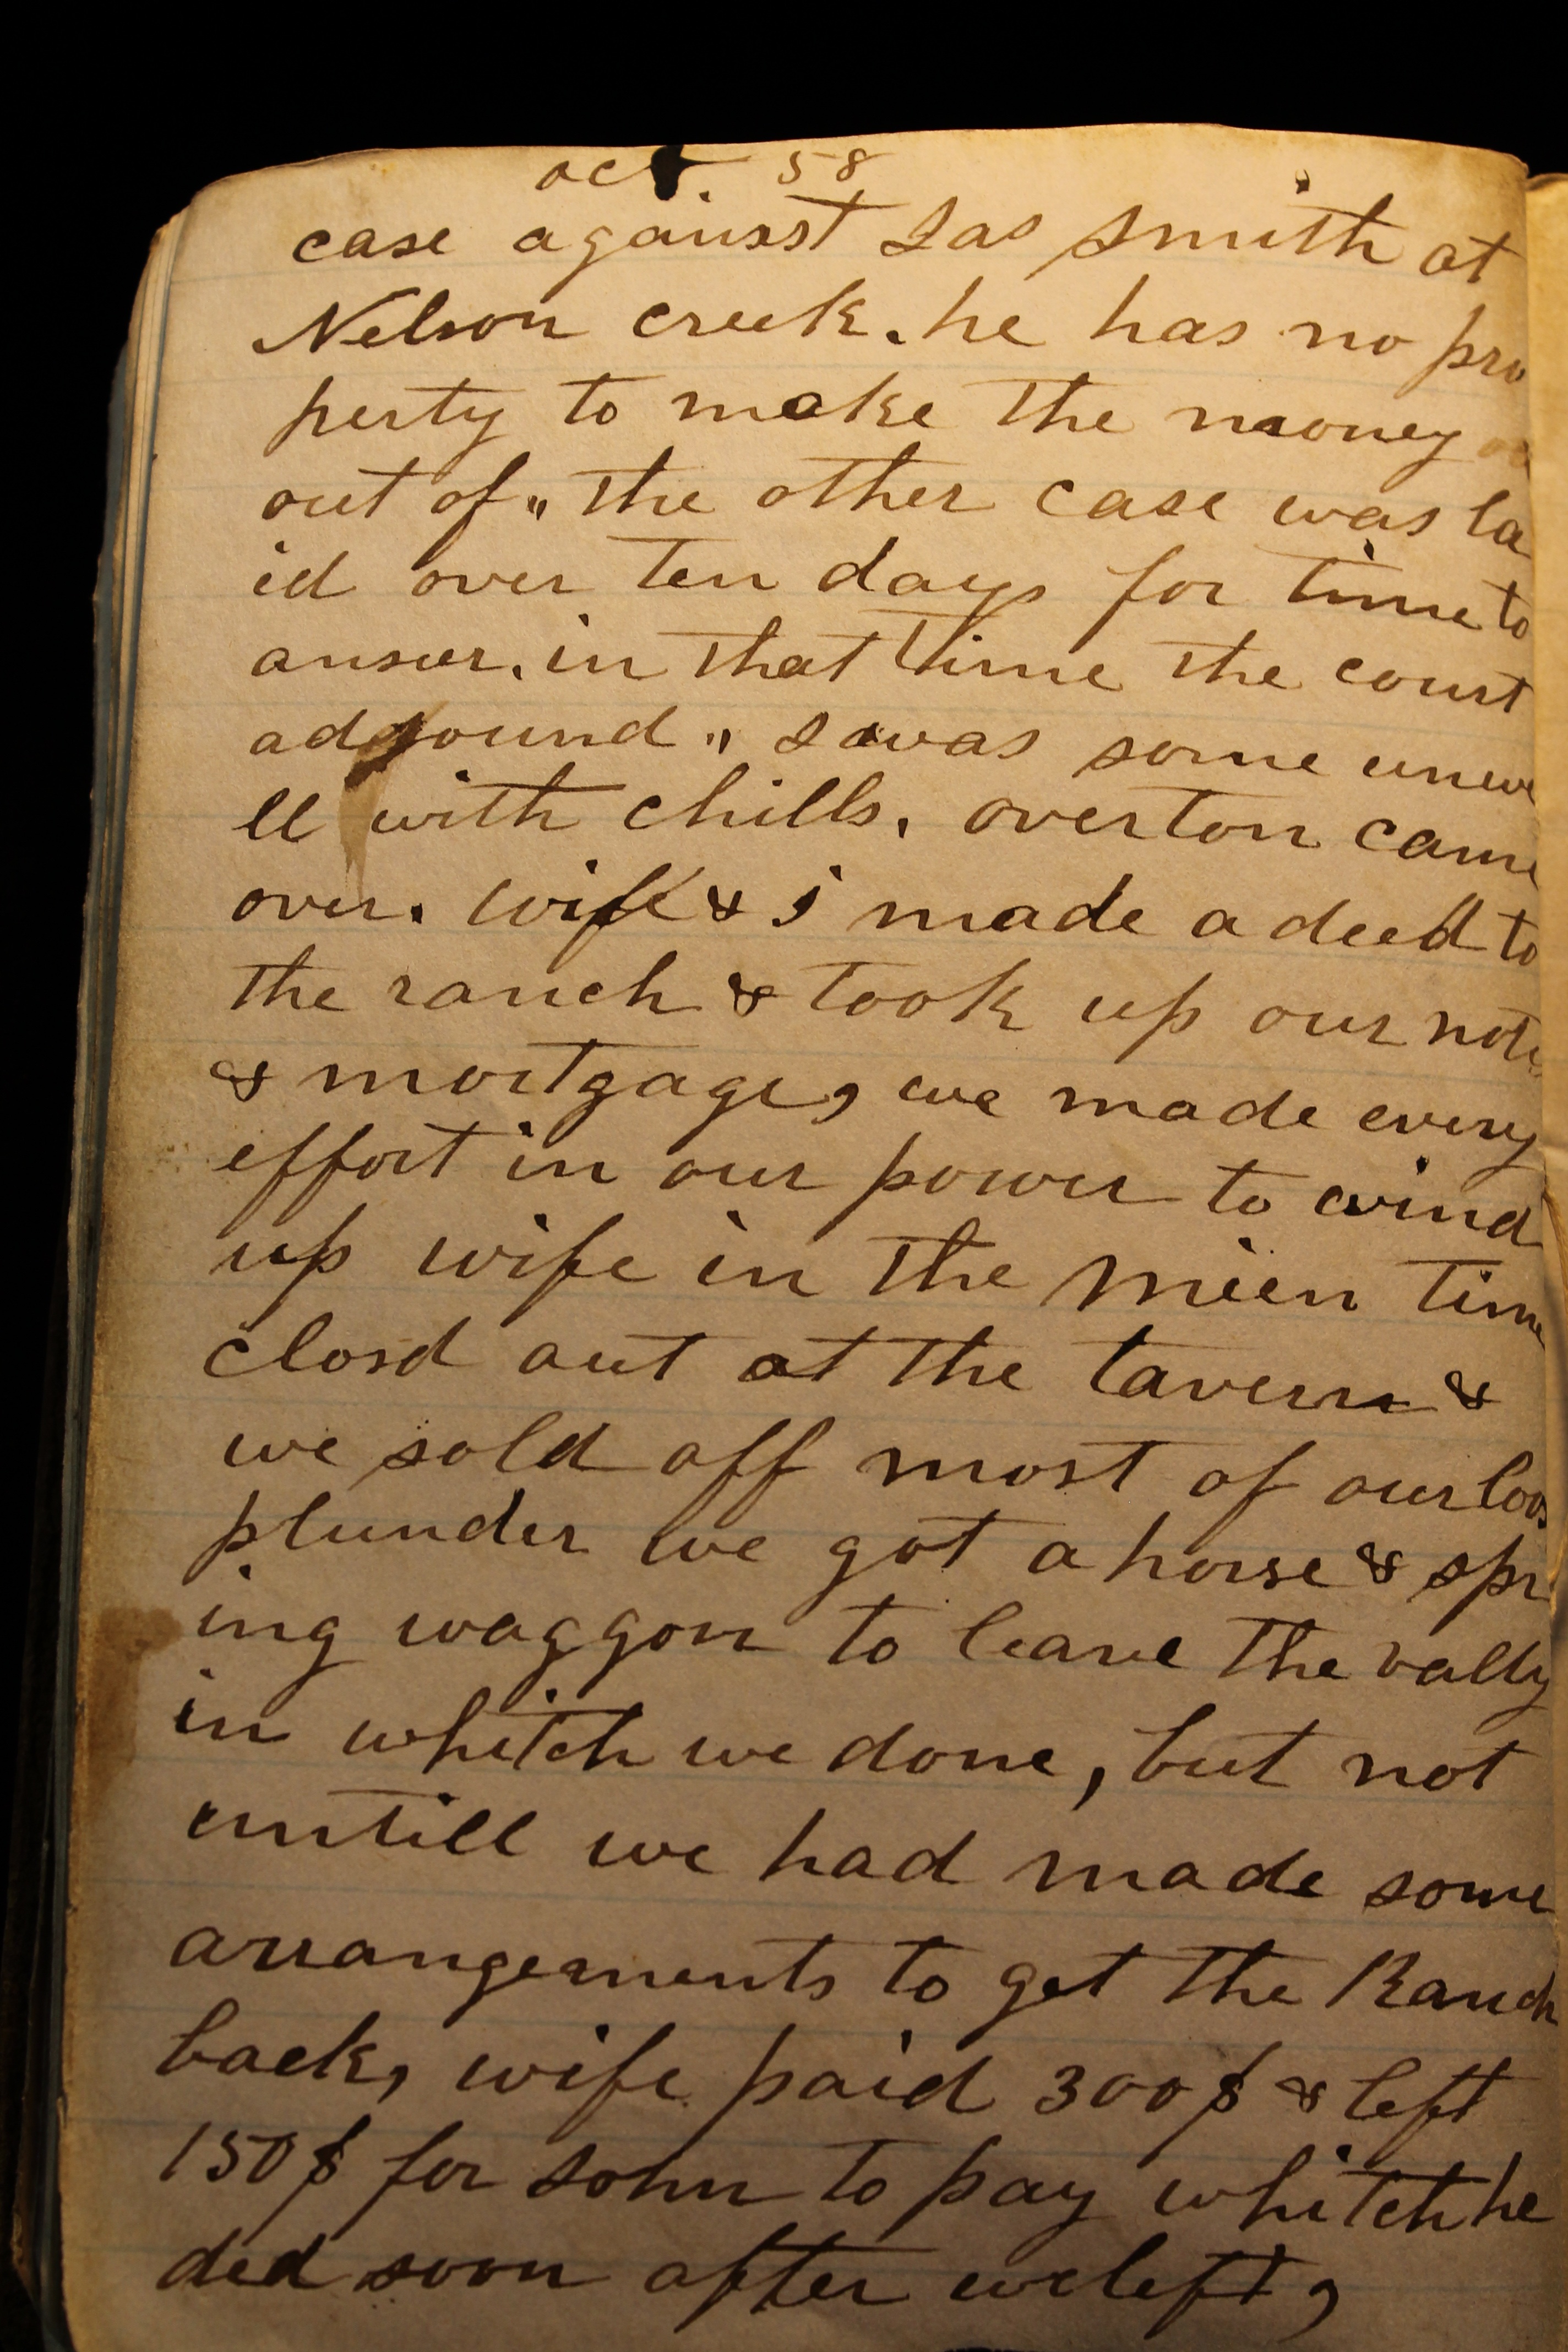 oct. 58
case against Jas Smith at
Nelson creek. he has no pro
perty to make the money
out of „ the other case was la
id over ten days for time to
answer. in that time the court
adjournd „ I was some unwe
ll with chills. overton came
over. wife & i made a deed to
the ranch & took up our note
& mortgage, we made every
effort in our power to wind
up wife in the mien time
closd out at the tavern &
we sold off most of our loos
plunder we got a horse & spr
ing waggon to leave the vally
in whitch we done, but not
untill we had made some
arrangements to get the Ranch
back, wife paid 300$ & left
150$ for John to pay whitch he
ded soon after we left,